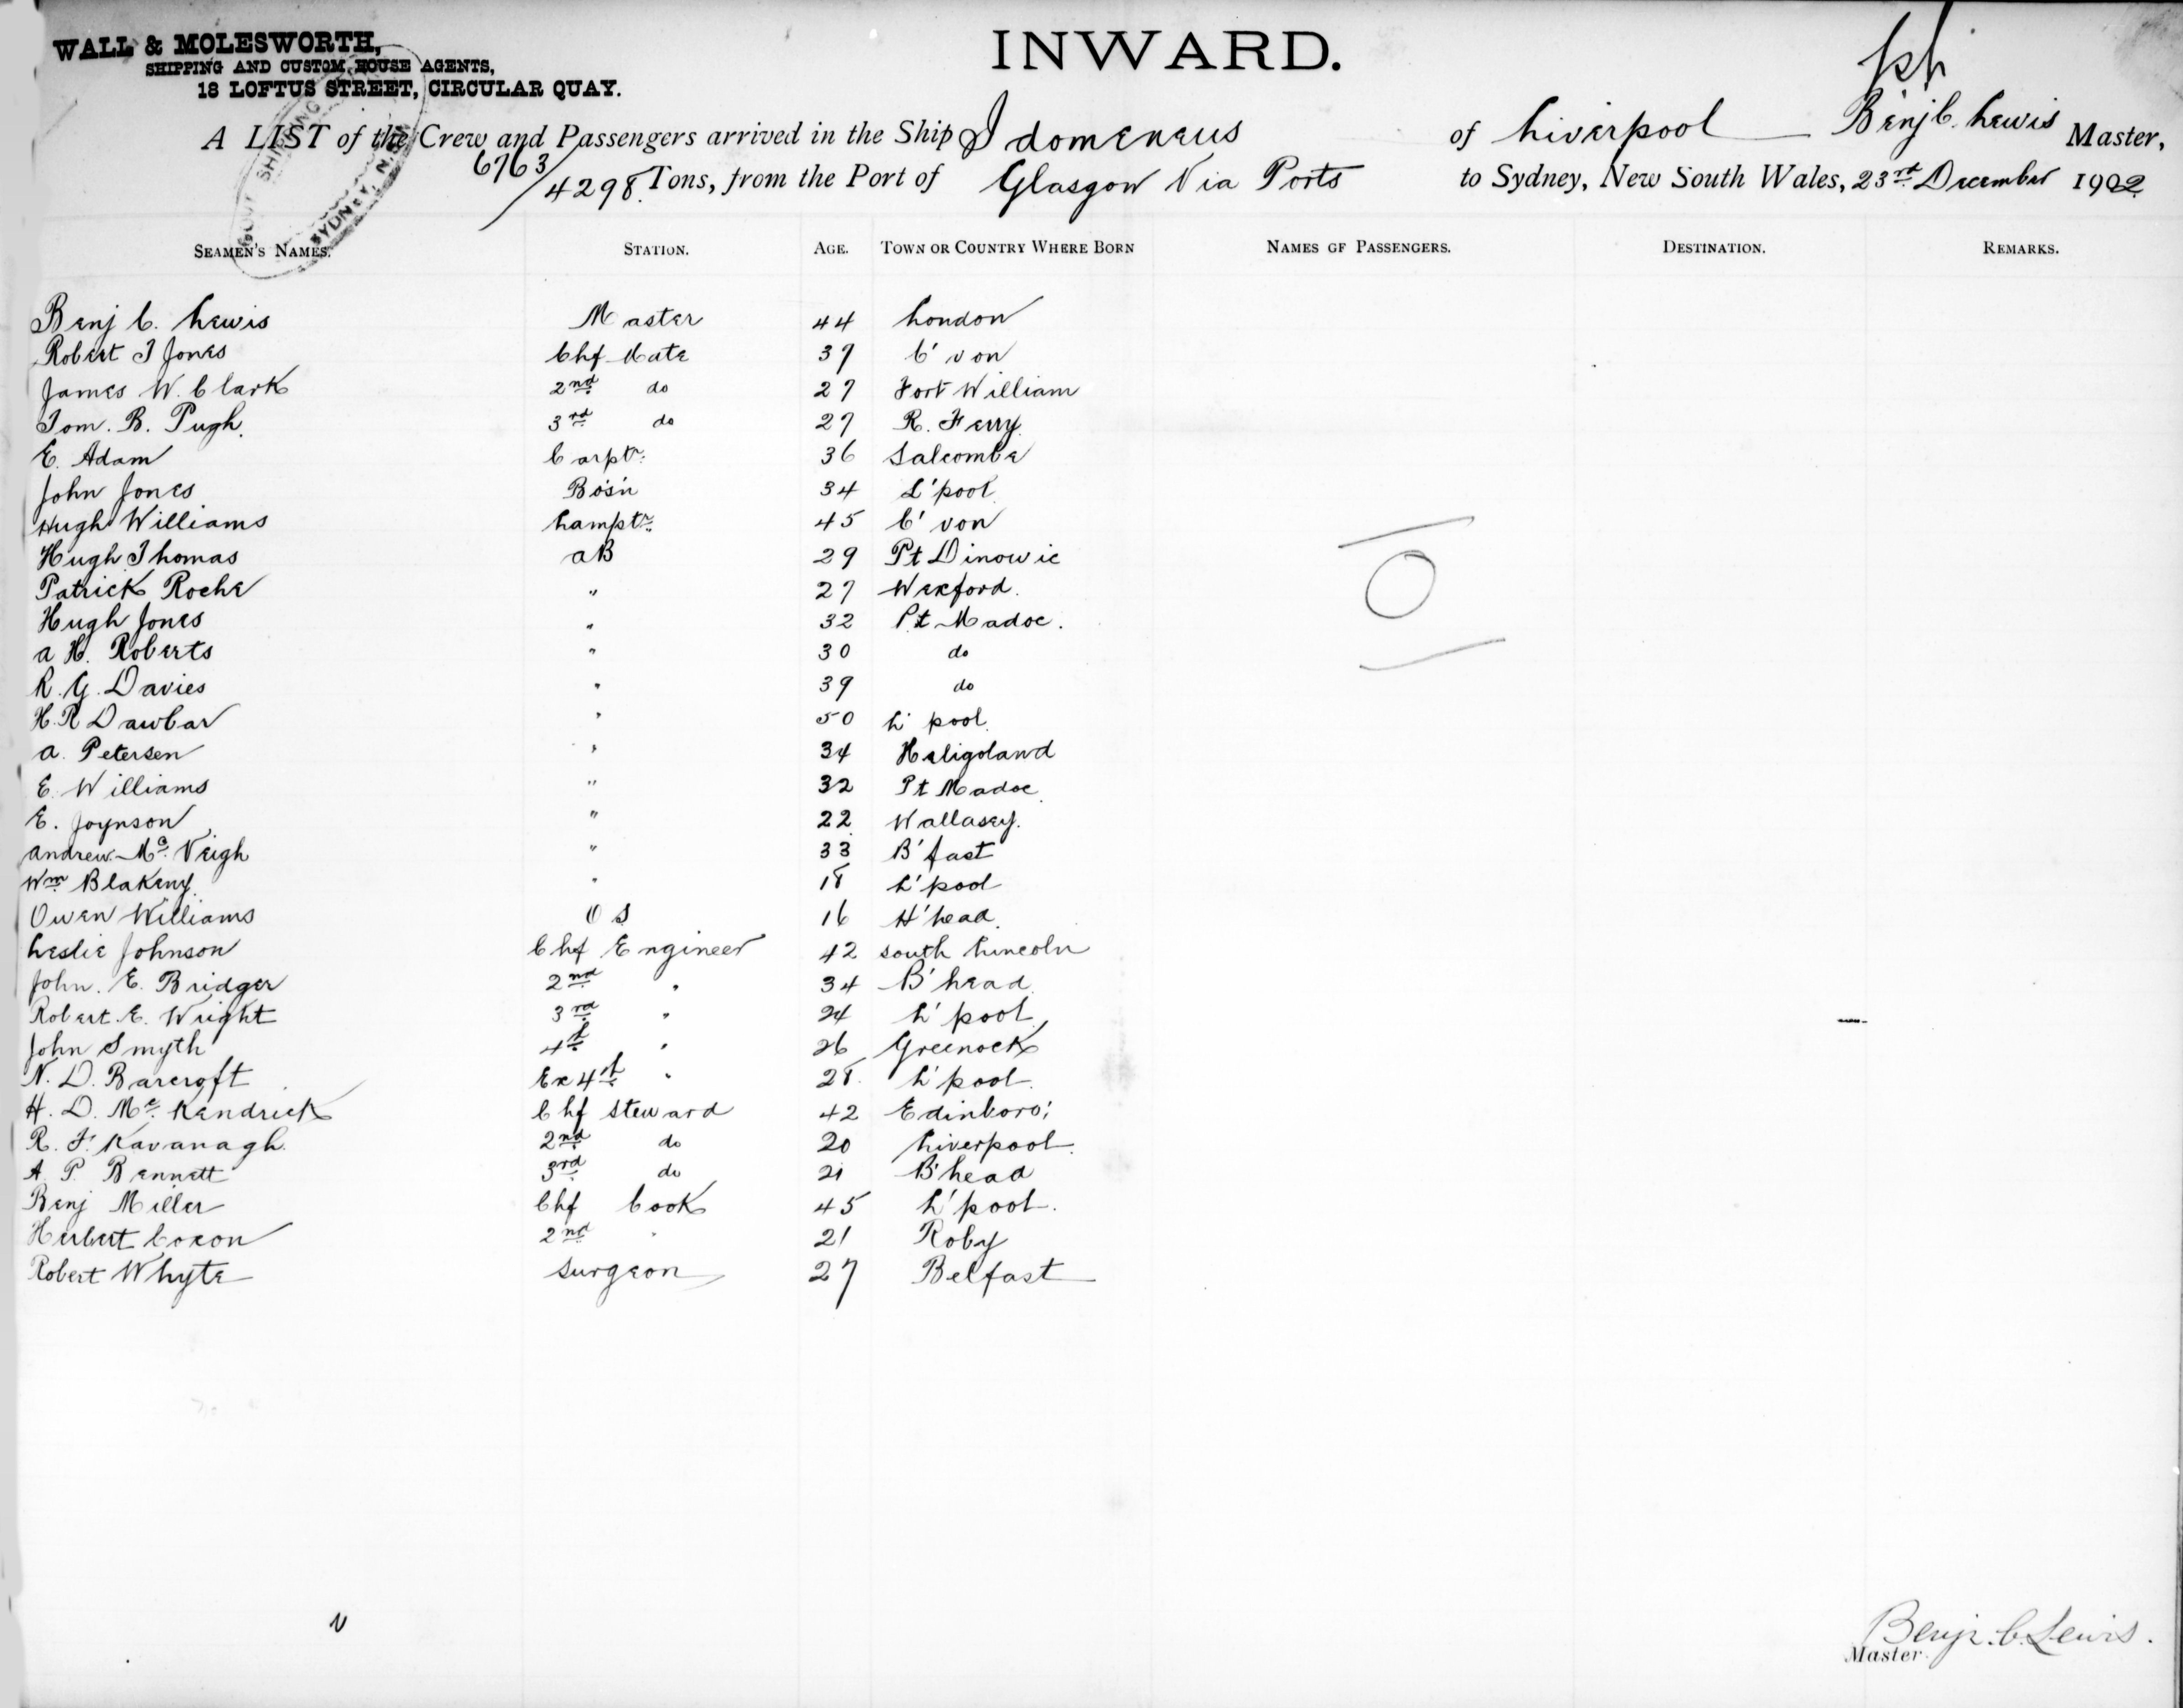 WALL & MOLESWORTH,
SHIPPING AND CUSTOM HOUSE AGENTS,
18 LOFTUS STREET, CIRCULAR QUAY.
INWARD.
A LIST of the Crew and Passengers arrived in the Ship Idomeneus of Liverpool Benj C. Lewis Master,
6763/4298 Tons, from the Port of Glasgow Via Ports to Sydney, New South Wales, 23rd December 1902
SEAMEN'S NAMES. STATION. AGE. TOWN OR COUNTRY WHERE BORN NAMES OF PASSENGERS. DESTINATION. REMARKS.
Benj C. Lewis Master 44 London
Robert T Jones Chf Mate 37 C'von
James W. Clark 2nd do 27 Fort William
Tom. B. Pugh. 3rd do 27 R. Ferry
E. Adam Carptr. 36 Salcombe
John Jones Bos'n 34 L'pool
Hugh Williams Lamptr. 45 C'von
Hugh Thomas AB 29 Pt Dinowic
Patrick Roche " 27 Wexford.
Hugh Jones " 32 Pt Madoc.
A H. Roberts " 30 do
R. G. Davies " 39 do
H. R Dawbar " 50 L'pool.
A. Petersen " 34 Heligoland
E. Williams " 32 Pt Madoc
E. Joynson " 22 Wallasey.
Andrew Mc Veigh " 33 B'fast
Wm Blakeny " 18 L'pool
Owen Williams OS 16 H'head.
Leslie Johnson Chf Engineer 42 South Lincoln
John. E. Bridger 2nd " 34 B'head
Robert E. Wright 3rd " 24 L'pool
John Smyth 4th " 26 Greenock
N. D. Barcroft Ex 4th " 28. L'pool
H. D. Mc Kendrick Chf Steward 42 Edinboro'
R. F. Kavanagh. 2nd do 20 Liverpool.
A. P. Bennett 3rd do 21 B'head
Benj Miller Chf Cook 45 L'pool.
Herbert Coxon 2nd " 21 Roby
Robert Whyte Surgeon 27 Belfast
O
Benj. C. Lewis.
Master.